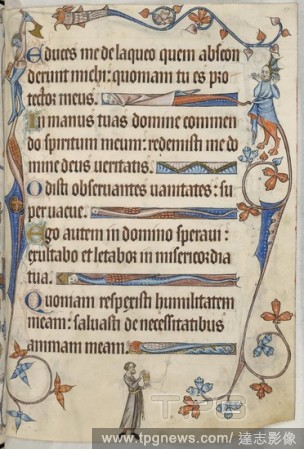 Educes me de laqueo quem abscon
derunt michi: quoniam tu es pro
tector meus.
In manus tuas domine commen
do spiritum meum: redemisti me do
mine deus veritatis.
Odisti observantes vanitates: su
pervacue.
Ego autem in domino speravi:
exultabo et letabor in misericordia
tua.
Quoniam respexisti humilitatem
meam: salvasti de necessitatibus
animam meam.
TPG
www.tpgnews.com/達志影像